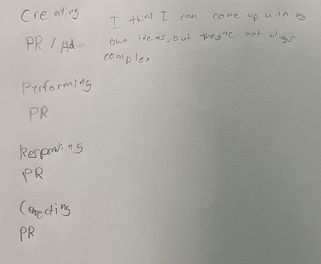 Creating
I think I can come up with my
PR / Ad
own ideas, but they're not always
complex
Performing
PR
Responding
PR
Connecting
PR